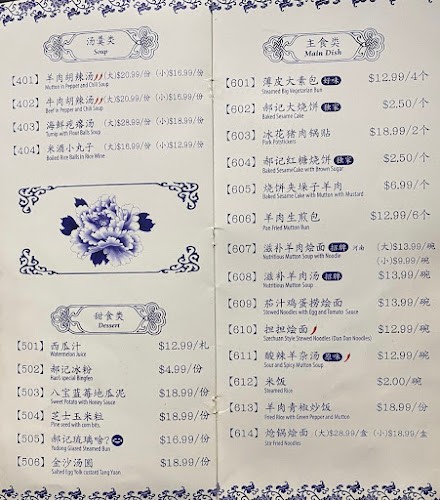 汤羹类
Soup
【401】羊肉胡辣汤 (大)$20.99/份 (小)$16.99/份
Mutton in Pepper and Chili Soup
【402】牛肉胡辣汤 (大)$20.99/份 (小)$15.99/份
Beef in Pepper and Chili Soup
【403】海鲜疙瘩汤 (大)$28.99/份 (小)$18.99/份
Turnip with Flour Balls Soup
【404】米酒小丸子 (大)$16.99/份 (小)$12.99/份
Boiled Rice Balls in Rice Wine
甜食类
Dessert
【501】西瓜汁 $12.99/扎
Watermelon Juice
【502】郝记冰粉 $4.99/份
Hao's special Bingfen
【503】八宝蓝莓地瓜泥 $18.99/份
Sweet Potato with Honey Sauce
【504】芝士玉米粒 $18.99/份
Pine seed with corn bits.
【505】郝记琉璃啥? $16.99/份
Yudong Glazed Steamed Bun
【506】金沙汤圆 $18.99/份
Salted Egg Yolk custard Tang Yuan
主食类
Main Dish
【601】薄皮大素包 好味 $12.99/4个
Steamed Big Vegetarian Bun
【602】郝记大烧饼 独家 $2.50/个
Baked Sesame Cake
【603】冰花猪肉锅贴 $18.99/2个
Pork Potstickers
【604】郝记红糖烧饼 独家 $2.50/个
Baked Sesame Cake with Brown Sugar
【605】烧饼夹垛子羊肉 $6.99/个
Baked Sesame Cake with Mutton with Mustard
【606】羊肉生煎包 $12.99/6个
Pan Fried Mutton Bun
【607】滋补羊肉烩面 招牌 河南 (大)$13.99/碗
Nutritious Mutton Soup with Noodle (小)$9.99/碗
【608】滋补羊肉汤 招牌 $13.99/碗
Nutritious Mutton Soup
【609】茄汁鸡蛋捞烩面 $13.99/碗
Stewed Noodles with Egg and Tomato Sauce
【610】担担烩面 $12.99/碗
Szechuan Style Stewed Noodles (Dan Dan Noodles)
【611】酸辣羊杂汤 原味 $12.99/碗
Sour and Spicy Mutton Soup
【612】米饭 $2.00/碗
Steamed Rice
【613】羊肉青椒炒饭 $18.99/份
Fried Rice with Green Pepper and Mutton
【614】炝锅烩面 (大)$28.99/盒 (小)$18.99/盒
Stir Fried Noodles